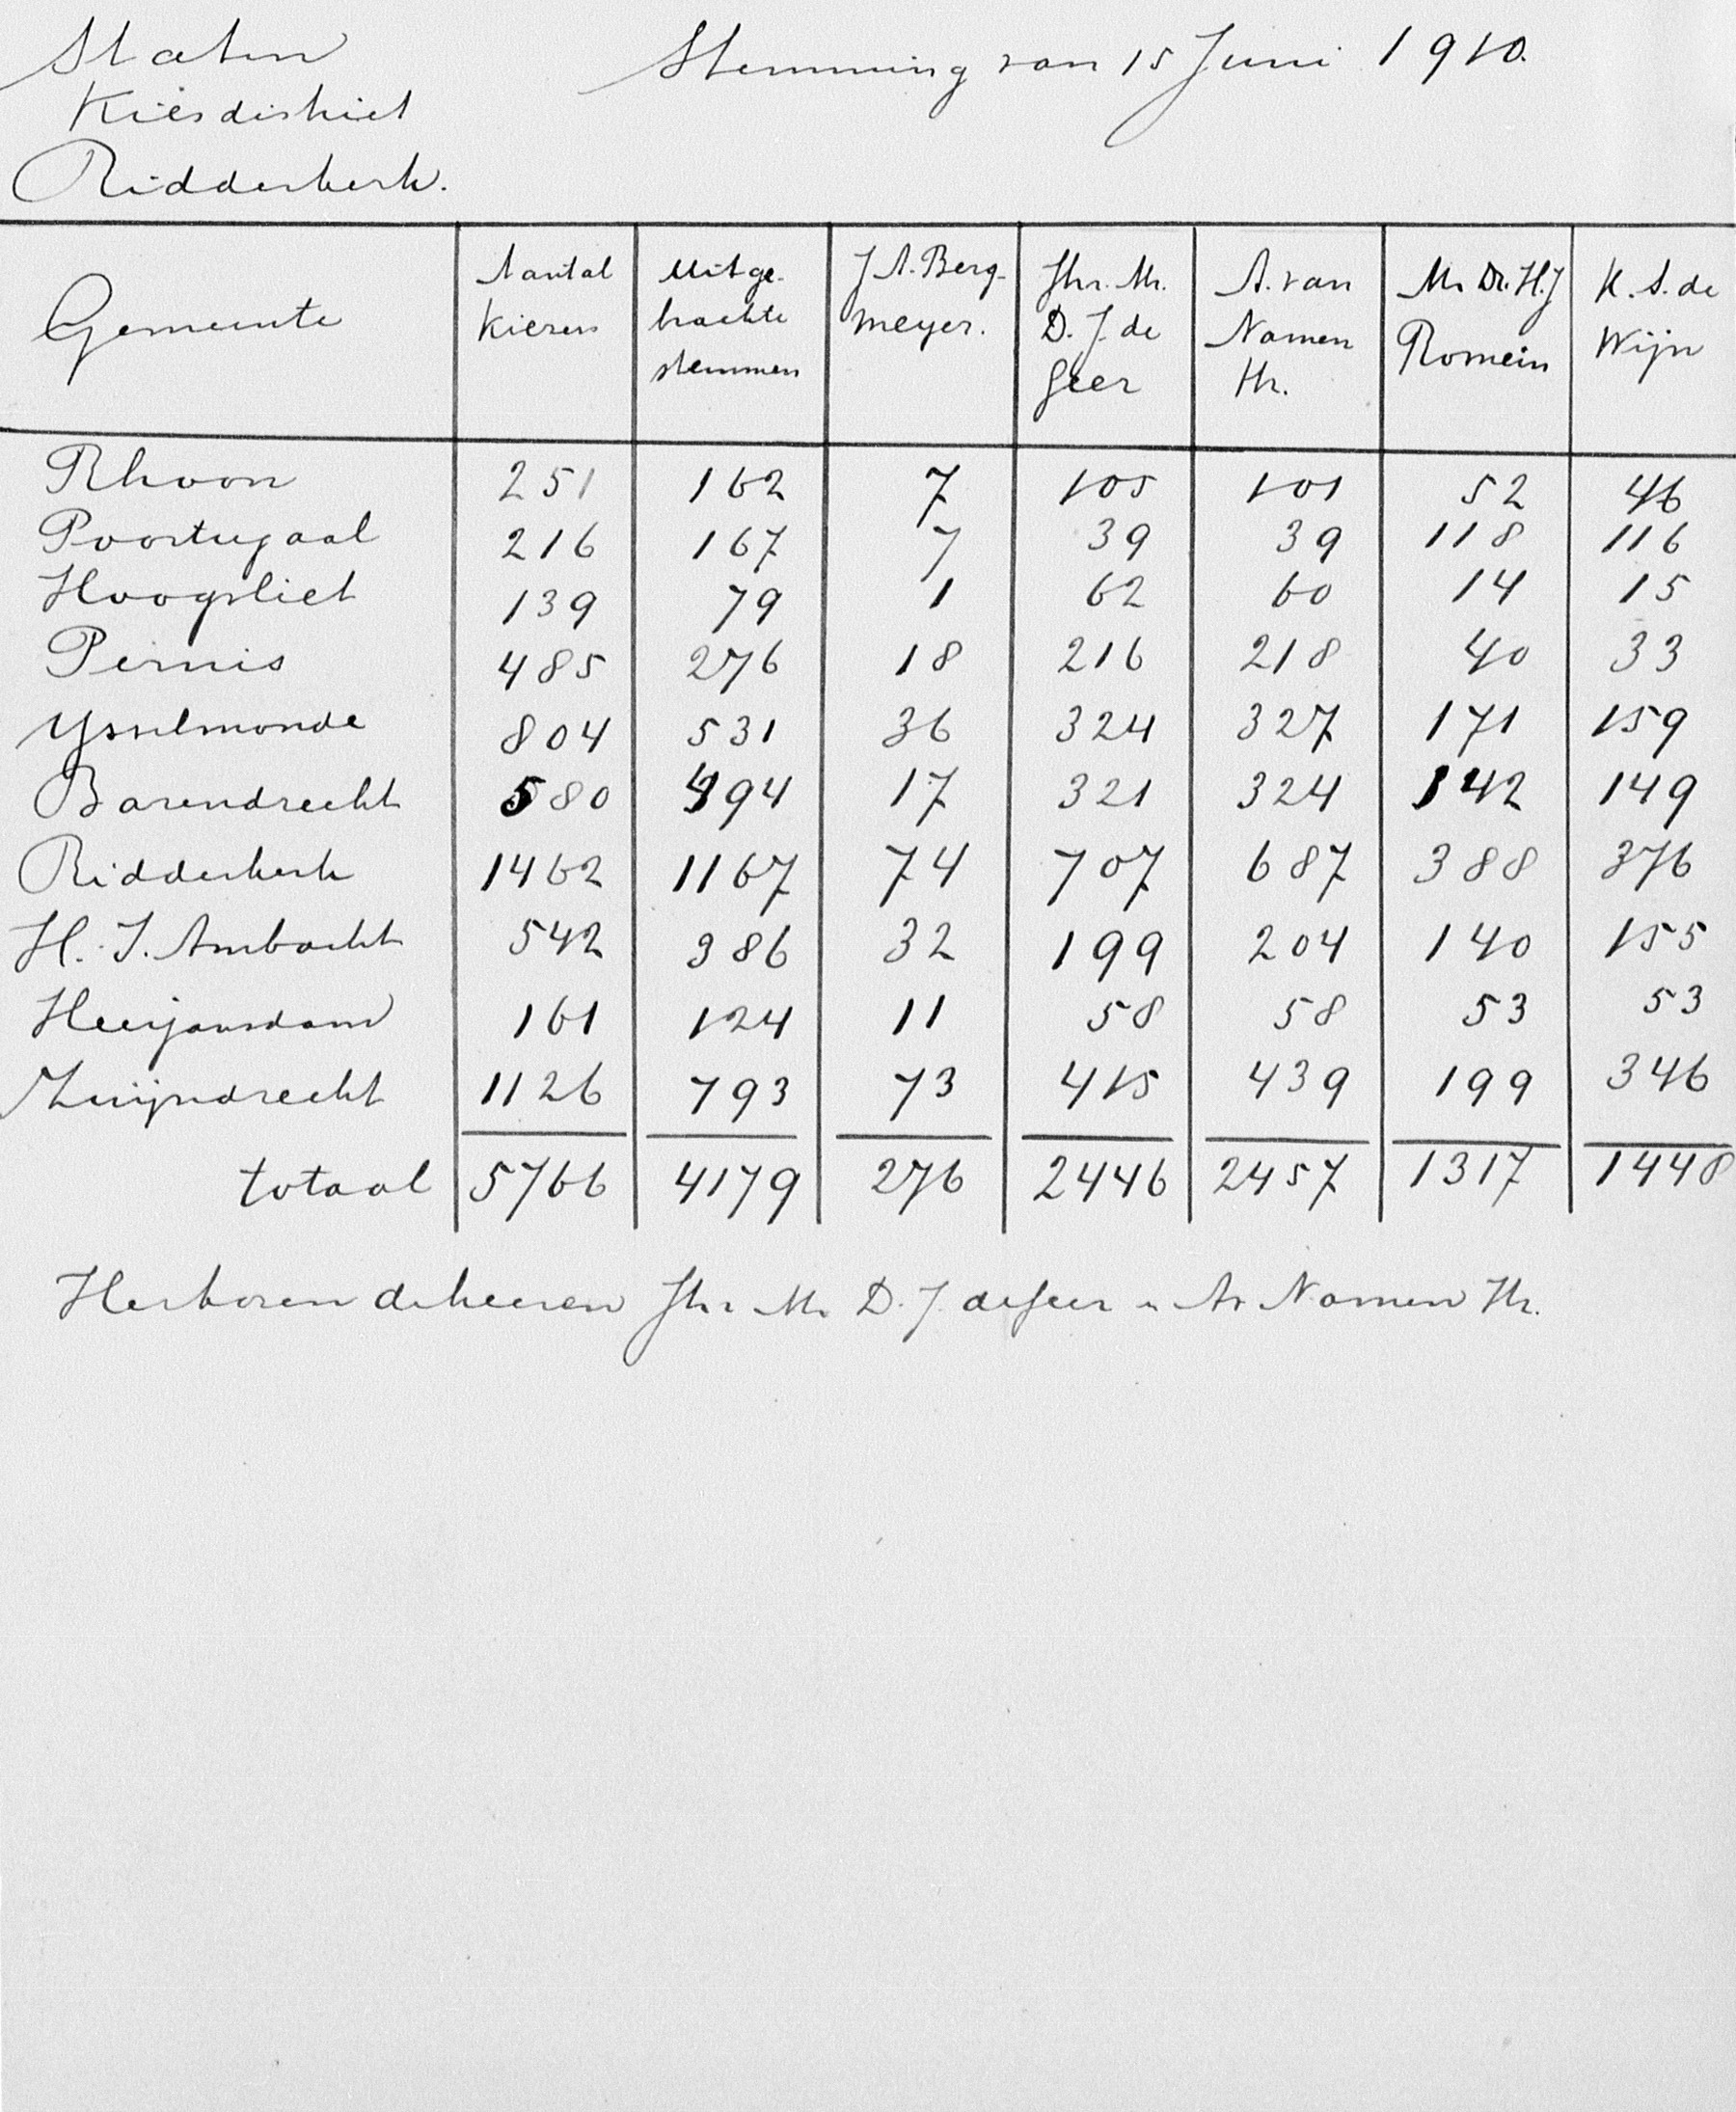 Staten
Kiesdistrict
Ridderkerk.
Stemming van 15 Juni 1910.
Gemeente | Aantal kiezers | Uitgebrachte stemmen | J. A. Bergmeyer. | Jhr. Mr. D. J. de Geer | A. van Namen Hz. | Mr Dr. H. J Romein | K. S. de Wijn
Rhoon 251 162 7 105 101 52 46
Poortugaal 216 167 7 39 39 118 116
Hoogvliet 139 79 1 62 60 14 15
Pernis 485 276 18 216 218 40 33
Ysselmonde 804 531 36 324 327 171 159
Barendrecht 580 494 17 321 324 142 149
Ridderkerk 1462 1167 74 707 687 388 376
H. I. Ambacht 542 386 32 199 204 140 155
Heerjansdam 161 124 11 58 58 53 53
Zwijndrecht 1126 793 73 415 439 199 346
totaal 5766 4179 276 2446 2457 1317 1448
Herkozen de heeren Jhr Mr D. J. de Geer en A v Namen Hz.